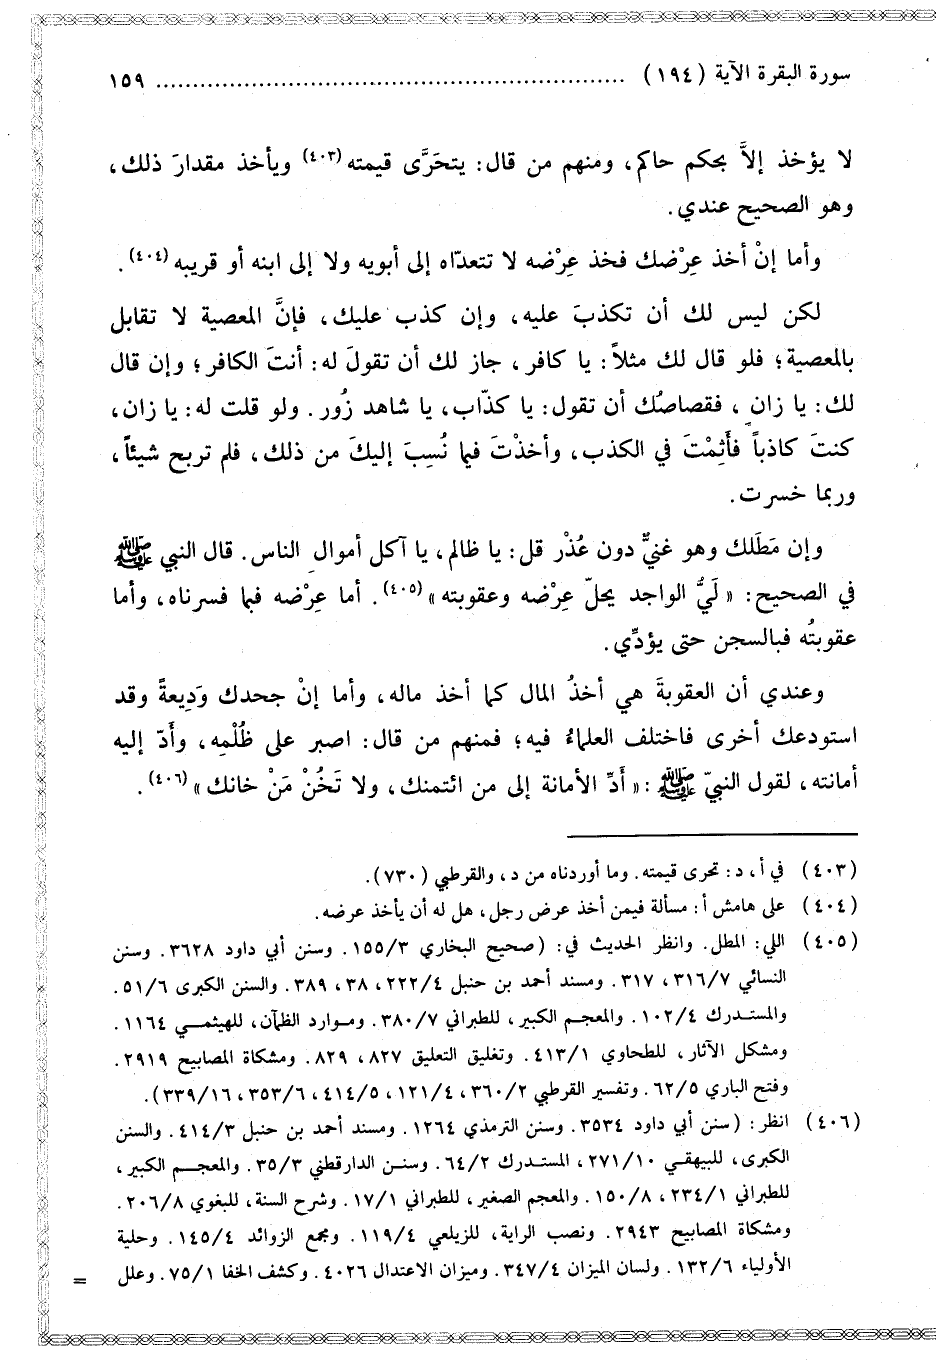 سورة البقرة الآية (١٩٤) ................................................................ ١٥٩
لا يؤخذ إلاَّ بحكم حاكم، ومنهم من قال: يتحَرَّى قيمته (٤٠٣) ويأخذ مقدارَ ذلك،
وهو الصحيح عندي.
وأما إنْ أخذ عِرْضك فخذ عِرْضه لا تتعدّاه إلى أبويه ولا إلى ابنه أو قريبه (٤٠٤).
لكن ليس لك أن تكذبَ عليه، وإن كذب عليك، فإنَّ المعصية لا تقابل
بالمعصية؛ فلو قال لك مثلاً: يا كافر، جاز لك أن تقولَ له: أنتَ الكافر؛ وإن قال
لك: يا زانٍ، فقصاصُك أن تقول: يا كذّاب، يا شاهد زُور. ولو قلت له: يا زان،
كنتَ كاذباً فأَثِمْتَ في الكذب، وأخذْتَ فيما نُسِبَ إليكَ من ذلك، فلم تربح شيئاً،
وربما خسرت.
وإن مَطَلك وهو غنيٌّ دون عُذْر قل: يا ظالم، يا آكل أموالِ الناس. قال النبي ﷺ
في الصحيح: «لَيُّ الواجد يحلّ عِرْضه وعقوبته» (٤٠٥). أما عِرْضه فبما فسرناه، وأما
عقوبتُه فبالسجن حتى يؤدِّي.
وعندي أن العقوبةَ هي أخذُ المال كما أخذ ماله، وأما إنْ جحدك وَدِيعةً وقد
استودعك أخرى فاختلف العلماءُ فيه؛ فمنهم من قال: اصبر على ظُلْمِه، وأَدّ إليه
أمانته، لقول النبيّ ﷺ: «أَدِّ الأمانة إلى من ائتمنك، ولا تَخُنْ مَنْ خانك» (٤٠٦).
(٤٠٣) في أ، د: تحرى قيمته. وما أوردناه من د، والقرطبي (٧٣٠).
(٤٠٤) على هامش أ: مسألة فيمن أخذ عرض رجل، هل له أن يأخذ عرضه.
(٤٠٥) اللي: المطل. وانظر الحديث في: (صحيح البخاري ١٥٥/٣. وسنن أبي داود ٣٦٢٨. وسنن
النسائي ٣١٦/٧، ٣١٧. ومسند أحمد بن حنبل ٢٢٢/٤، ٣٨، ٣٨٩. والسنن الكبرى ٥١/٦.
والمستدرك ١٠٢/٤. والمعجم الكبير، للطبراني ٣٨٠/٧. وموارد الظمآن، للهيثمي ١١٦٤.
ومشكل الآثار، للطحاوي ٤١٣/١. وتغليق التعليق ٨٢٧، ٨٢٩. ومشكاة المصابيح ٢٩١٩.
وفتح الباري ٦٢/٥. وتفسير القرطبي ٣٦٠/٢، ١٢١/٤، ٤١٤/٥، ٣٥٣/٦، ٣٣٩/١٦).
(٤٠٦) انظر: (سنن أبي داود ٣٥٣٤. وسنن الترمذي ١٢٦٤. ومسند أحمد بن حنبل ٤١٤/٣. والسنن
الكبرى، للبيهقي ٢٧١/١٠، المستدرك ٦٤/٢. وسنن الدارقطني ٣٥/٣. والمعجم الكبير،
للطبراني ٢٣٤/١، ١٥٠/٨. والمعجم الصغير، للطبراني ١٧/١. وشرح السنة، للبغوي ٢٠٦/٨.
ومشكاة المصابيح ٢٩٤٣. ونصب الراية، للزيلعي ١١٩/٤. ومجمع الزوائد ١٤٥/٤. وحلية
الأولياء ١٣٢/٦. ولسان الميزان ٣٤٧/٤. وميزان الاعتدال ٤٠٢٦. وكشف الخفا ٧٥/١. وعلل =